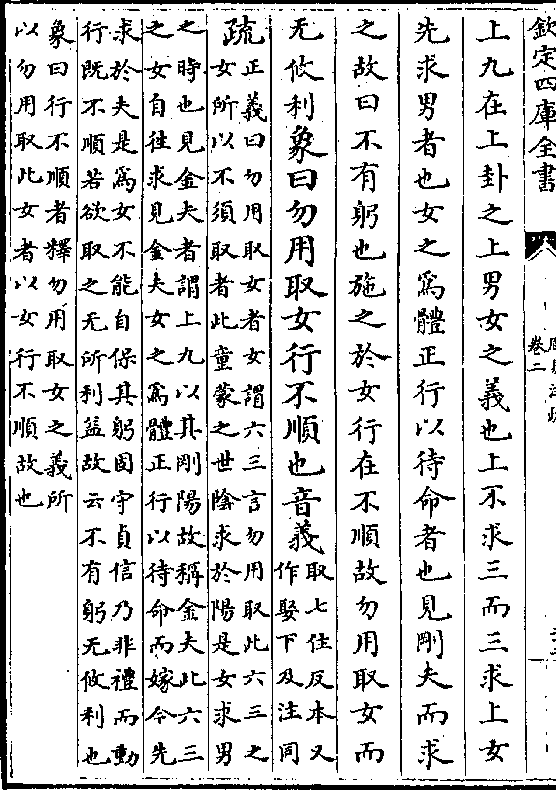 欽定四庫全書
卷二
上九在上卦之上男女之義也上不求三而三求上女
先求男者也女之為體正行以待命者也見剛夫而求
之故曰不有躬也施之於女行在不順故勿用取女而
无攸利象曰勿用取女行不順也音義取七住反本又
作娶下及注同
疏正義曰勿用取女者女謂六三言勿用取此六三之
女所以不須取者此童蒙之世陰求於陽是女求男
之時也見金夫者謂上九以其剛陽故稱金夫此六三
之女自往求見金夫女之為體正行以待命而嫁今先
求於夫是為女不能自保其躬固守貞信乃非禮而動
行既不順若欲取之无所利益故云不有躬无攸利也
象曰行不順者釋勿用取女之義所
以勿用取此女者以女行不順故也